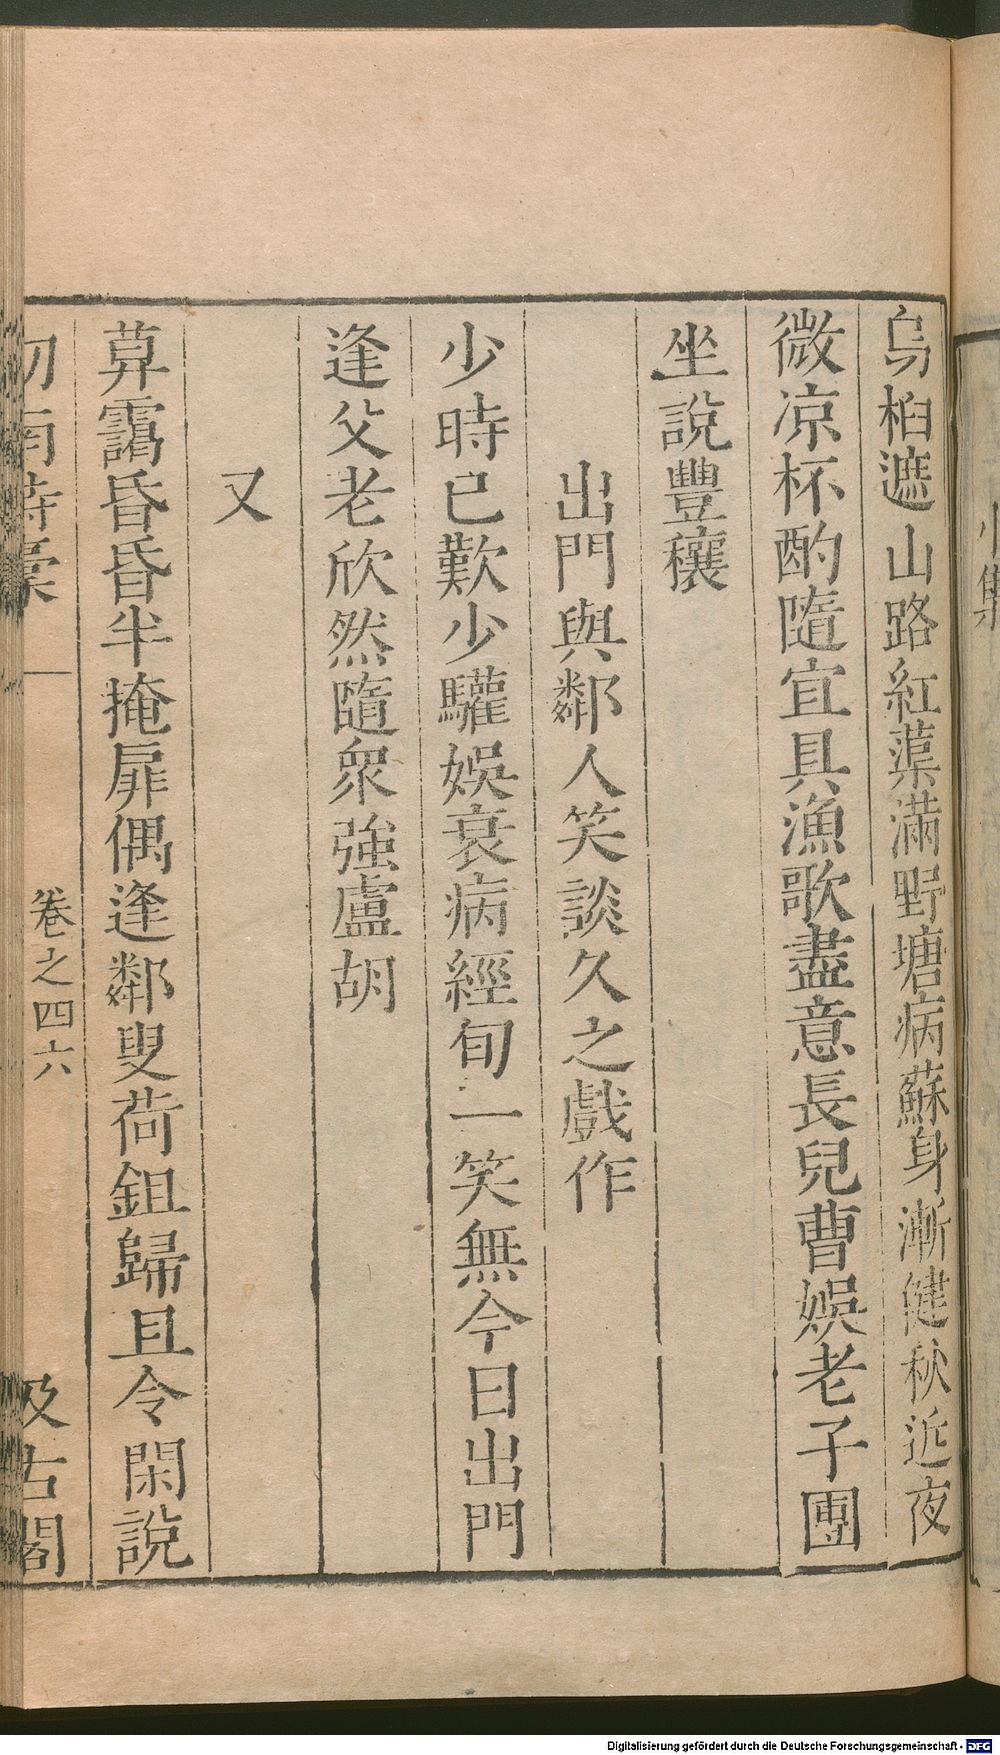 烏桕遮山路紅蕖滿野塘病蘇身漸健秋近夜
微凉杯酌隨宜具漁歌盡意長兒曹娛老子團
坐說豐穰
出門與鄰人笑談久之戲作
少時已歎少驩娛衰病經旬一笑無今日出門
逢父老欣然隨衆強盧胡
又
草靄昏昏半掩扉偶逢鄰叟荷鉏歸且令閑說
卷之四六
及古閣
小集
Digitalisierung gefördert durch die Deutsche Forschungsgemeinschaft - DFG